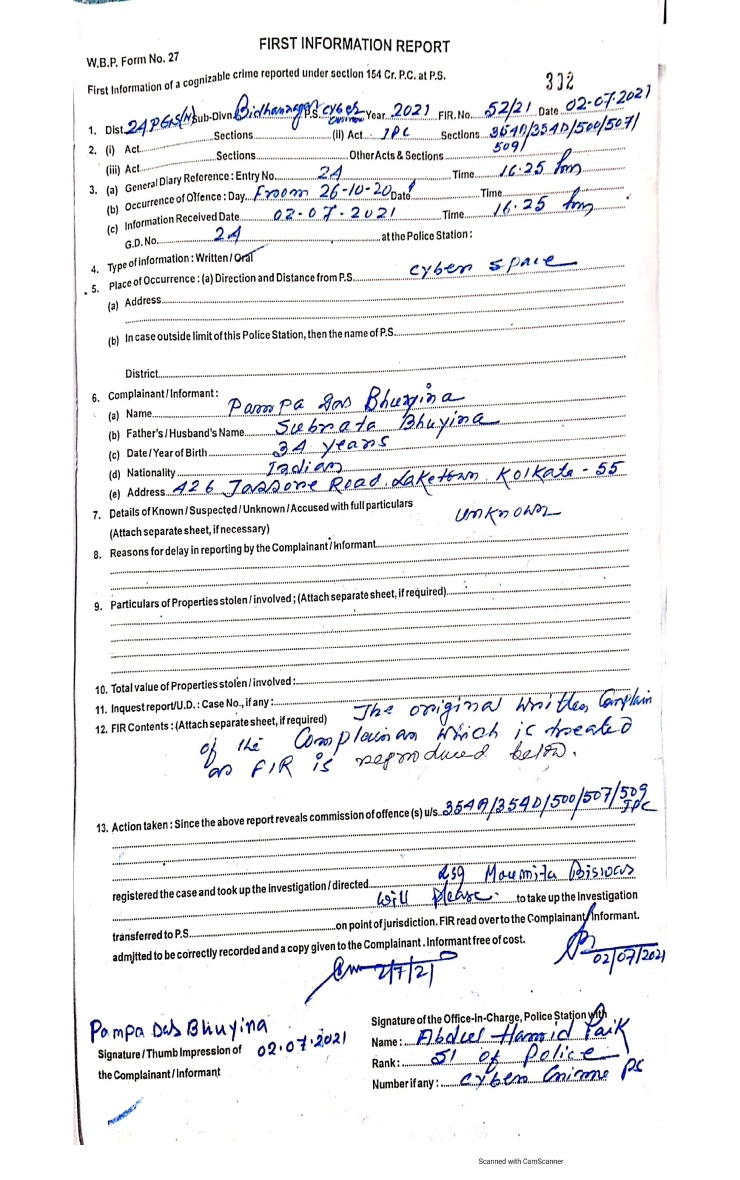 FIRST INFORMATION REPORT
W.B.P. Form No. 27
First Information of a cognizable crime reported under section 154 Cr. P.C. at P.S.
332
1. Dist. 24 PGS(N) Sub-Divn. Bidhannagar P.S. Cyber Crime Year 2021 FIR. No. 52/21 Date 02.07.2021
2. (i) Act Sections (ii) Act IPC Sections 354A/354D/500/507/
509/
(iii) Act Sections Other Acts & Sections
3. (a) General Diary Reference : Entry No. 24 Time 16.25 hrs
(b) Occurrence of Offence : Day From 26-10-20 Date Time
(c) Information Received Date 02-07-2021 Time 16.25 hrs
G.D. No. 24 at the Police Station :
4. Type of information : Written / Oral
5. Place of Occurrence : (a) Direction and Distance from P.S. cyber space
(a) Address
(b) In case outside limit of this Police Station, then the name of P.S.
District
6. Complainant / Informant :
(a) Name Pampa Das Bhuyina
(b) Father's / Husband's Name Subrata Bhuyina
(c) Date / Year of Birth 34 years
(d) Nationality Indian
(e) Address 426 Jassore Road, Laketown, Kolkata - 55
7. Details of Known / Suspected / Unknown / Accused with full particulars
unknown
(Attach separate sheet, if necessary)
8. Reasons for delay in reporting by the Complainant / Informant
9. Particulars of Properties stolen / involved ; (Attach separate sheet, if required)
10. Total value of Properties stolen / involved :
11. Inquest report / U.D. : Case No., if any :
12. FIR Contents : (Attach separate sheet, if required) The original written Complain
of the Complainan which is treated
as FIR is reproduced below.
13. Action taken : Since the above report reveals commission of offence (s) u/s 354A/354D/500/507/509
IPC
registered the case and took up the investigation / directed Moumita Biswas
will please to take up the Investigation
transferred to P.S. on point of jurisdiction. FIR read over to the Complainant / Informant.
admitted to be correctly recorded and a copy given to the Complainant . Informant free of cost.
2/7/21
02/07/2021
Pampa Das Bhuyina
02.07.2021
Signature / Thumb Impression of
the Complainant / Informant
Signature of the Office-in-Charge, Police Station with
Name : Abdul Hamid Paik
Rank : SI of Police
Number if any : Cyber Crime PS
Scanned with CamScanner